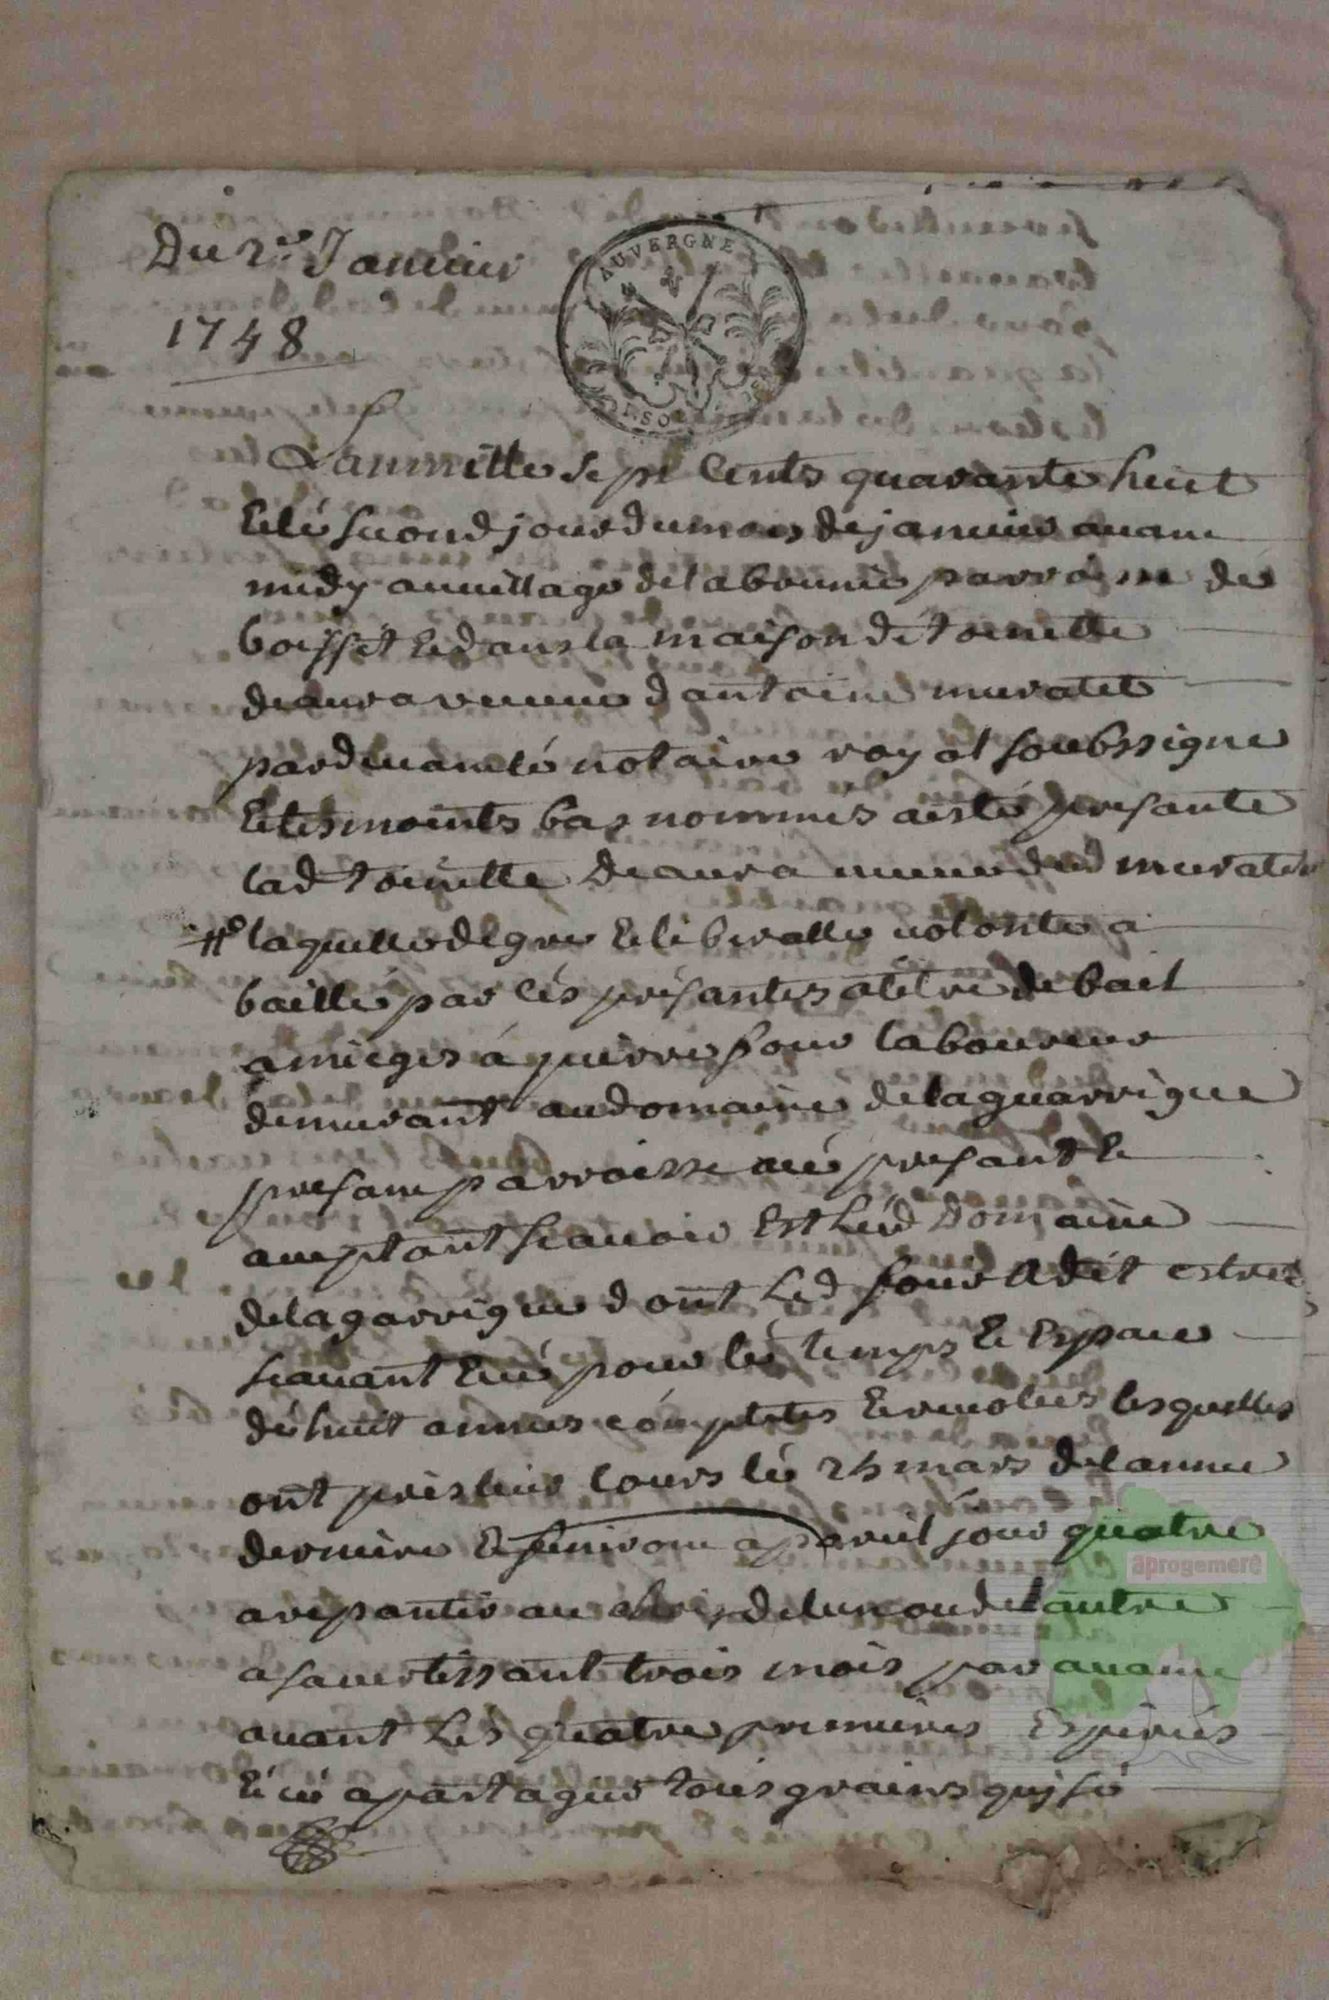 Du 2e Janvier
1748
AUVERGNE
SOLS
Lan mille sept cents quarante huit
Et lé second jour du mois de janvier avant
midy au village de labounie parroisse dé
boisset Et dans la maison dé toinette
deaura veuve dantoine muratet
pardevant lé notaire royal soubssigne
Et tesmoints bas nommés a esté presante
lad toinette Deaura veuve dud muratet
laquelle de gre Et liberalle volonte a
baille par cés présantes a titre de bail
a mieges á pierre four laboureur
demurant au domaine de laguarrigue
presant parroisse icy présant Et
acceptant scavoir Est led Domaine
de lagarrigue dont led four A dit estre
scavant Et cé pour lé temps Et Espace
dé huit années complétes Et revolues lesquelles
ont pris leur cours lé 25 mars de lannee
derniere Et finiront a pareil jour quatre
a repantir au choix de lun ou de lautre
a savertissant trois mois par avant
avant lés quatre premieres Expirés
Et cé a partager tous grains quy sé
aprogemere